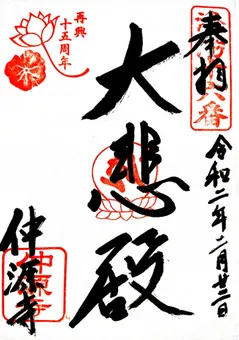 奉拝
令和二年二月廿二日
大悲殿
仲源寺
再興
十五周年
仲源寺